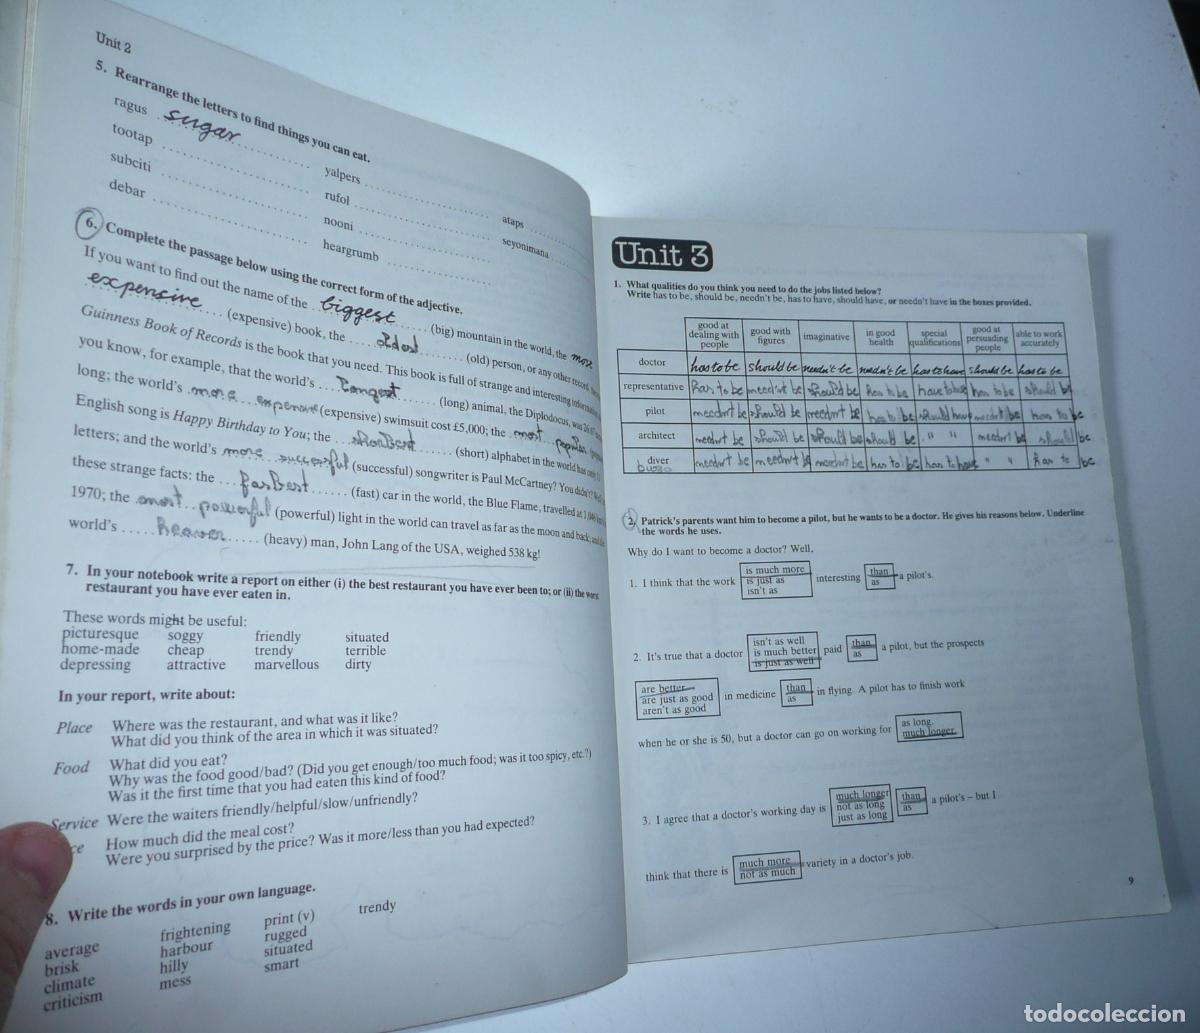 Unit 2
5. Rearrange the letters to find things you can eat.
ragus sugar yalpers ataps
tootap rufol seyonimana
subciti nooni
debar heargrumb
6. Complete the passage below using the correct form of the adjective.
If you want to find out the name of the biggest (big) mountain in the world, the most
expensive (expensive) book, the oldest (old) person, or any other record, the
Guinness Book of Records is the book that you need. This book is full of strange and interesting information
you know, for example, that the world's longest (long) animal, the Diplodocus, was
long; the world's more expensive (expensive) swimsuit cost £5,000; the most popular
English song is Happy Birthday to You; the shortest (short) alphabet in the world has only
letters; and the world's more successful (successful) songwriter is Paul McCartney? You didn't?
these strange facts: the fastest (fast) car in the world, the Blue Flame, travelled at
1970; the most powerful (powerful) light in the world can travel as far as the moon and back; and the
world's heaver (heavy) man, John Lang of the USA, weighed 538 kg!
7. In your notebook write a report on either (i) the best restaurant you have ever been to; or (ii) the worst
restaurant you have ever eaten in.
These words might be useful:
picturesque soggy friendly situated
home-made cheap trendy terrible
depressing attractive marvellous dirty
In your report, write about:
Place Where was the restaurant, and what was it like?
What did you think of the area in which it was situated?
Food What did you eat?
Why was the food good/bad? (Did you get enough/too much food; was it too spicy, etc.?)
Was it the first time that you had eaten this kind of food?
Service Were the waiters friendly/helpful/slow/unfriendly?
How much did the meal cost?
Were you surprised by the price? Was it more/less than you had expected?
8. Write the words in your own language.
average frightening print (v) trendy
brisk harbour rugged
climate hilly situated
criticism mess smart
Unit 3
1. What qualities do you think you need to do the jobs listed below?
Write has to be, should be, needn't be, has to have, should have, or needn't have in the boxes provided.
good at dealing with people good with figures imaginative in good health special qualifications good at persuading people able to work accurately
doctor has to be should be needn't be needn't be has to have should be has to be
representative has to be needn't be should be has to be have to have has to be should be
pilot needn't be should be needn't be has to be should have needn't be has to be
architect needn't be should be should be should be " " needn't be should be
diver buzo needn't be needn't be needn't be has to be has to have " " has to be
2. Patrick's parents want him to become a pilot, but he wants to be a doctor. He gives his reasons below. Underline
the words he uses.
Why do I want to become a doctor? Well,
is much more
1. I think that the work is just as interesting than a pilot's.
isn't as as
isn't as well
2. It's true that a doctor is much better paid than a pilot, but the prospects
is just as well as
are better
are just as good in medicine than in flying. A pilot has to finish work
aren't as good as
when he or she is 50, but a doctor can go on working for as long.
much longer.
much longer
3. I agree that a doctor's working day is not as long than a pilot's – but I
just as long as
think that there is much more variety in a doctor's job.
not as much
9
todocoleccion